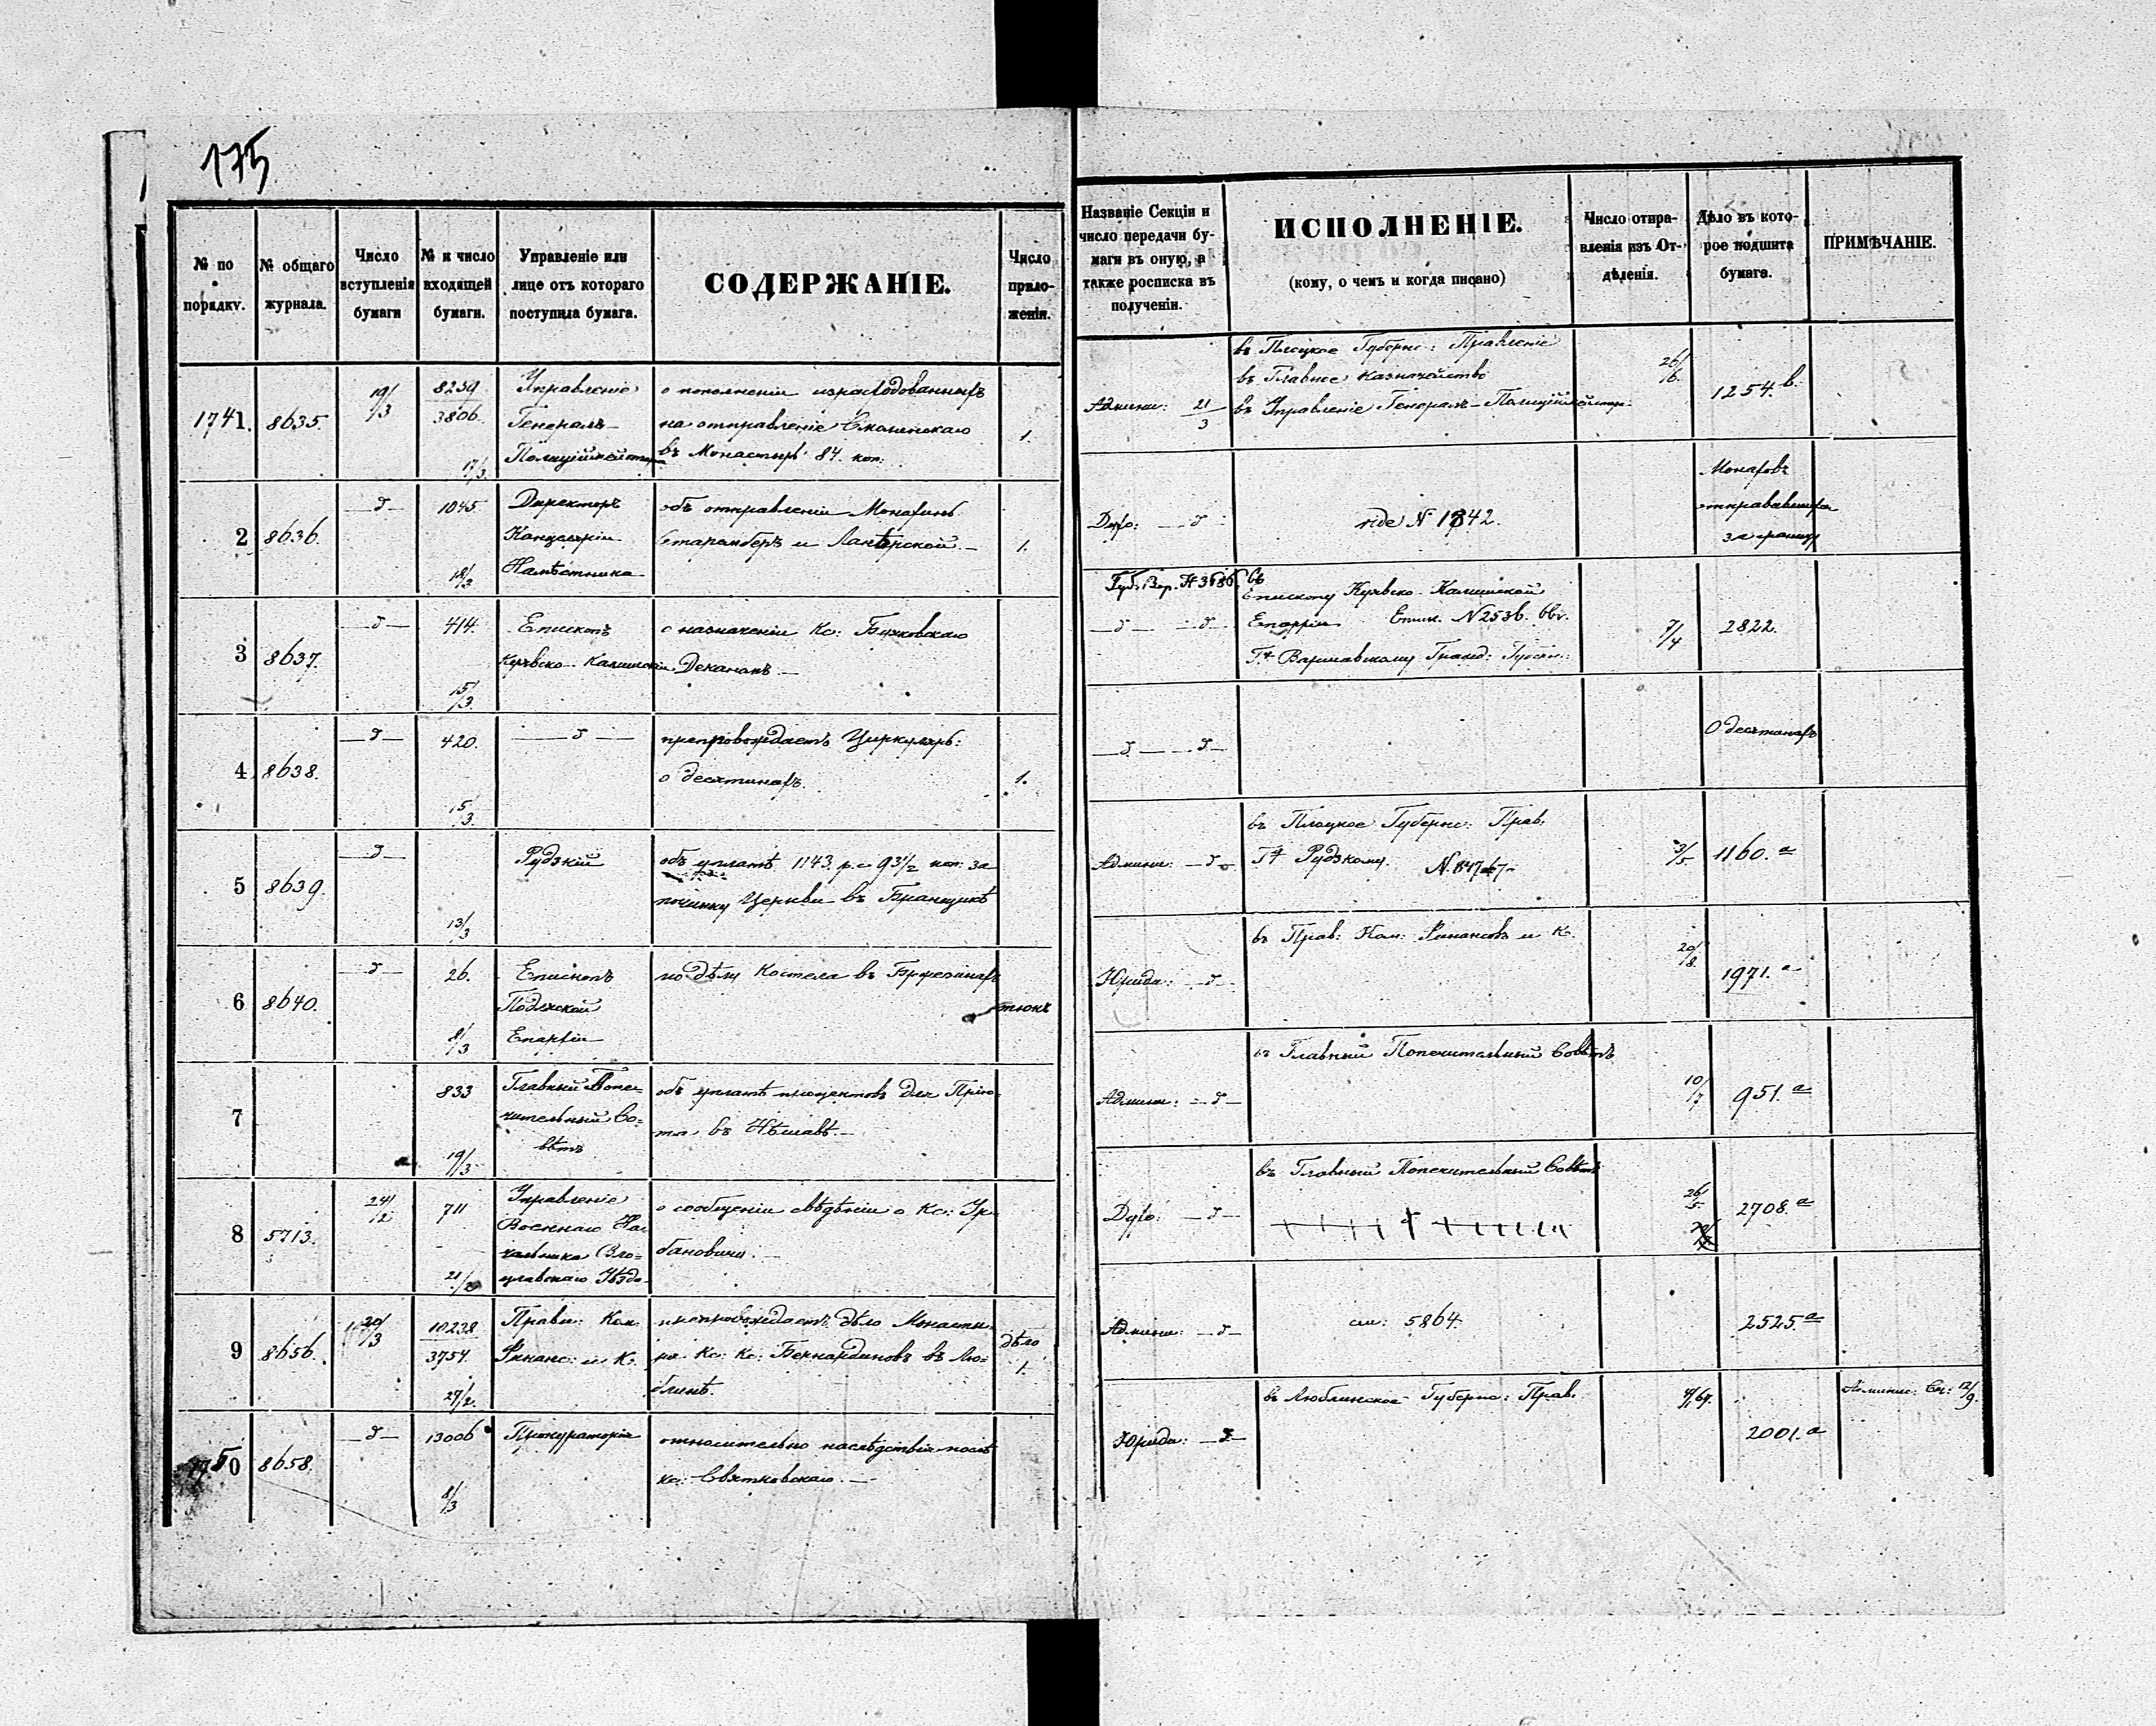 175
№ по порядку.
№ общаго журнала.
Число вступленія бумаги
№ и число входящей бумаги.
Управленіе или лице отъ котораго поступила бумага.
СОДЕРЖАНІЕ.
Число приложеній.
Названіе Секціи и число передачи бумаги въ оную, а также росписка въ полученіи.
ИСПОЛНЕНІЕ.
(кому, о чемъ и когда писано)
Число отправленія изъ Отдѣленія.
Дѣло въ которое подшита бумага.
ПРИМѢЧАНІЕ.
1741. 8635. 19/3 8239 3806. 17/3.
Управленіе
Генералъ-
Полиціймейстера
о пополненіи израсходованныхъ
на отправленіе Смоленскаго
въ Монастырь 84. коп.
1.
Админи: 21/3
въ Плоцкое Губернс: Правленіе
въ Главное Казначейство
въ Управленіе Генералъ-Полиціймейстера
26/6.
1254. b.
2 8636. —d— 1045. 18/3
Директоръ
Канцеляріи
Намѣстника
объ отправленіи Монахинь
1.
Духо: —d—
N 1842.
Монаховъ
отправавшихся
за границу
3 8637. —d— 414. 15/3.
Епископъ
Куявско-Калишскій
о назначеніи Кс: Бучковскаго
Деканомъ.—
—d— —d—
Епископу Куявско-Калишской
Епархіи N 2536.
Варшавскому Гражд: Губерн:
7/4
2822.
4 8638. —d— 420. 15/3.
—d—
препровождаетъ Циркуляръ:
о десятинахъ.
1.
—d— —d—
О десятинахъ
5 8639. —d— 13/3
Рудзкій
объ уплатѣ 1143. р. с 93 1/2 коп: за
починку Церкви въ Бранщикѣ
Админи: —d—
въ Плоцкое Губернс: Прав.
Рудзкому.
3/5
1160. a
6 8640. —d— 26. 8/3
Епископъ
Подляской
Епархіи
по дѣлу Костела въ Бржезинахъ
тюкъ
Юриди: —d—
въ Прав: Ком: Финансовъ и К.
20/8.
1971. a
7 833 19/3
Главный Попе-
чительный Со-
вѣтъ
объ уплатѣ процентовъ для Прію-
та въ Нѣшавѣ.—
Админи: —d—
въ Главный Попечительный Совѣтъ
10/7
951. a
8 5713. 24/2 711 21/2
Управленіе
Военнаго На-
чальника Вло-
цлавскаго Уѣзда
о сообщеніи свѣдѣній о Кс: Ур-
бановичи.—
Духо: —d—
въ Главный Попечительный Совѣтъ
26/5.
2708. a
9 8656. 20/3 10238 3754. 27/2.
Прави: Ком.
Финанс: и К.
препровождаетъ дѣло Монасты-
ря Кс: Кс: Бернардиновъ въ Лю-
блинѣ.
дѣло
1.
Админи: —d—
см: 5864.
2525. a
1750 8658. —d— 13006 8/3
Прокураторія
относительно наслѣдствія послѣ
кс: Святковскаго.—
Юриди: —d—
въ Люблинское Губернс: Прав.
2001. a
Админис: Сек: 12/9.